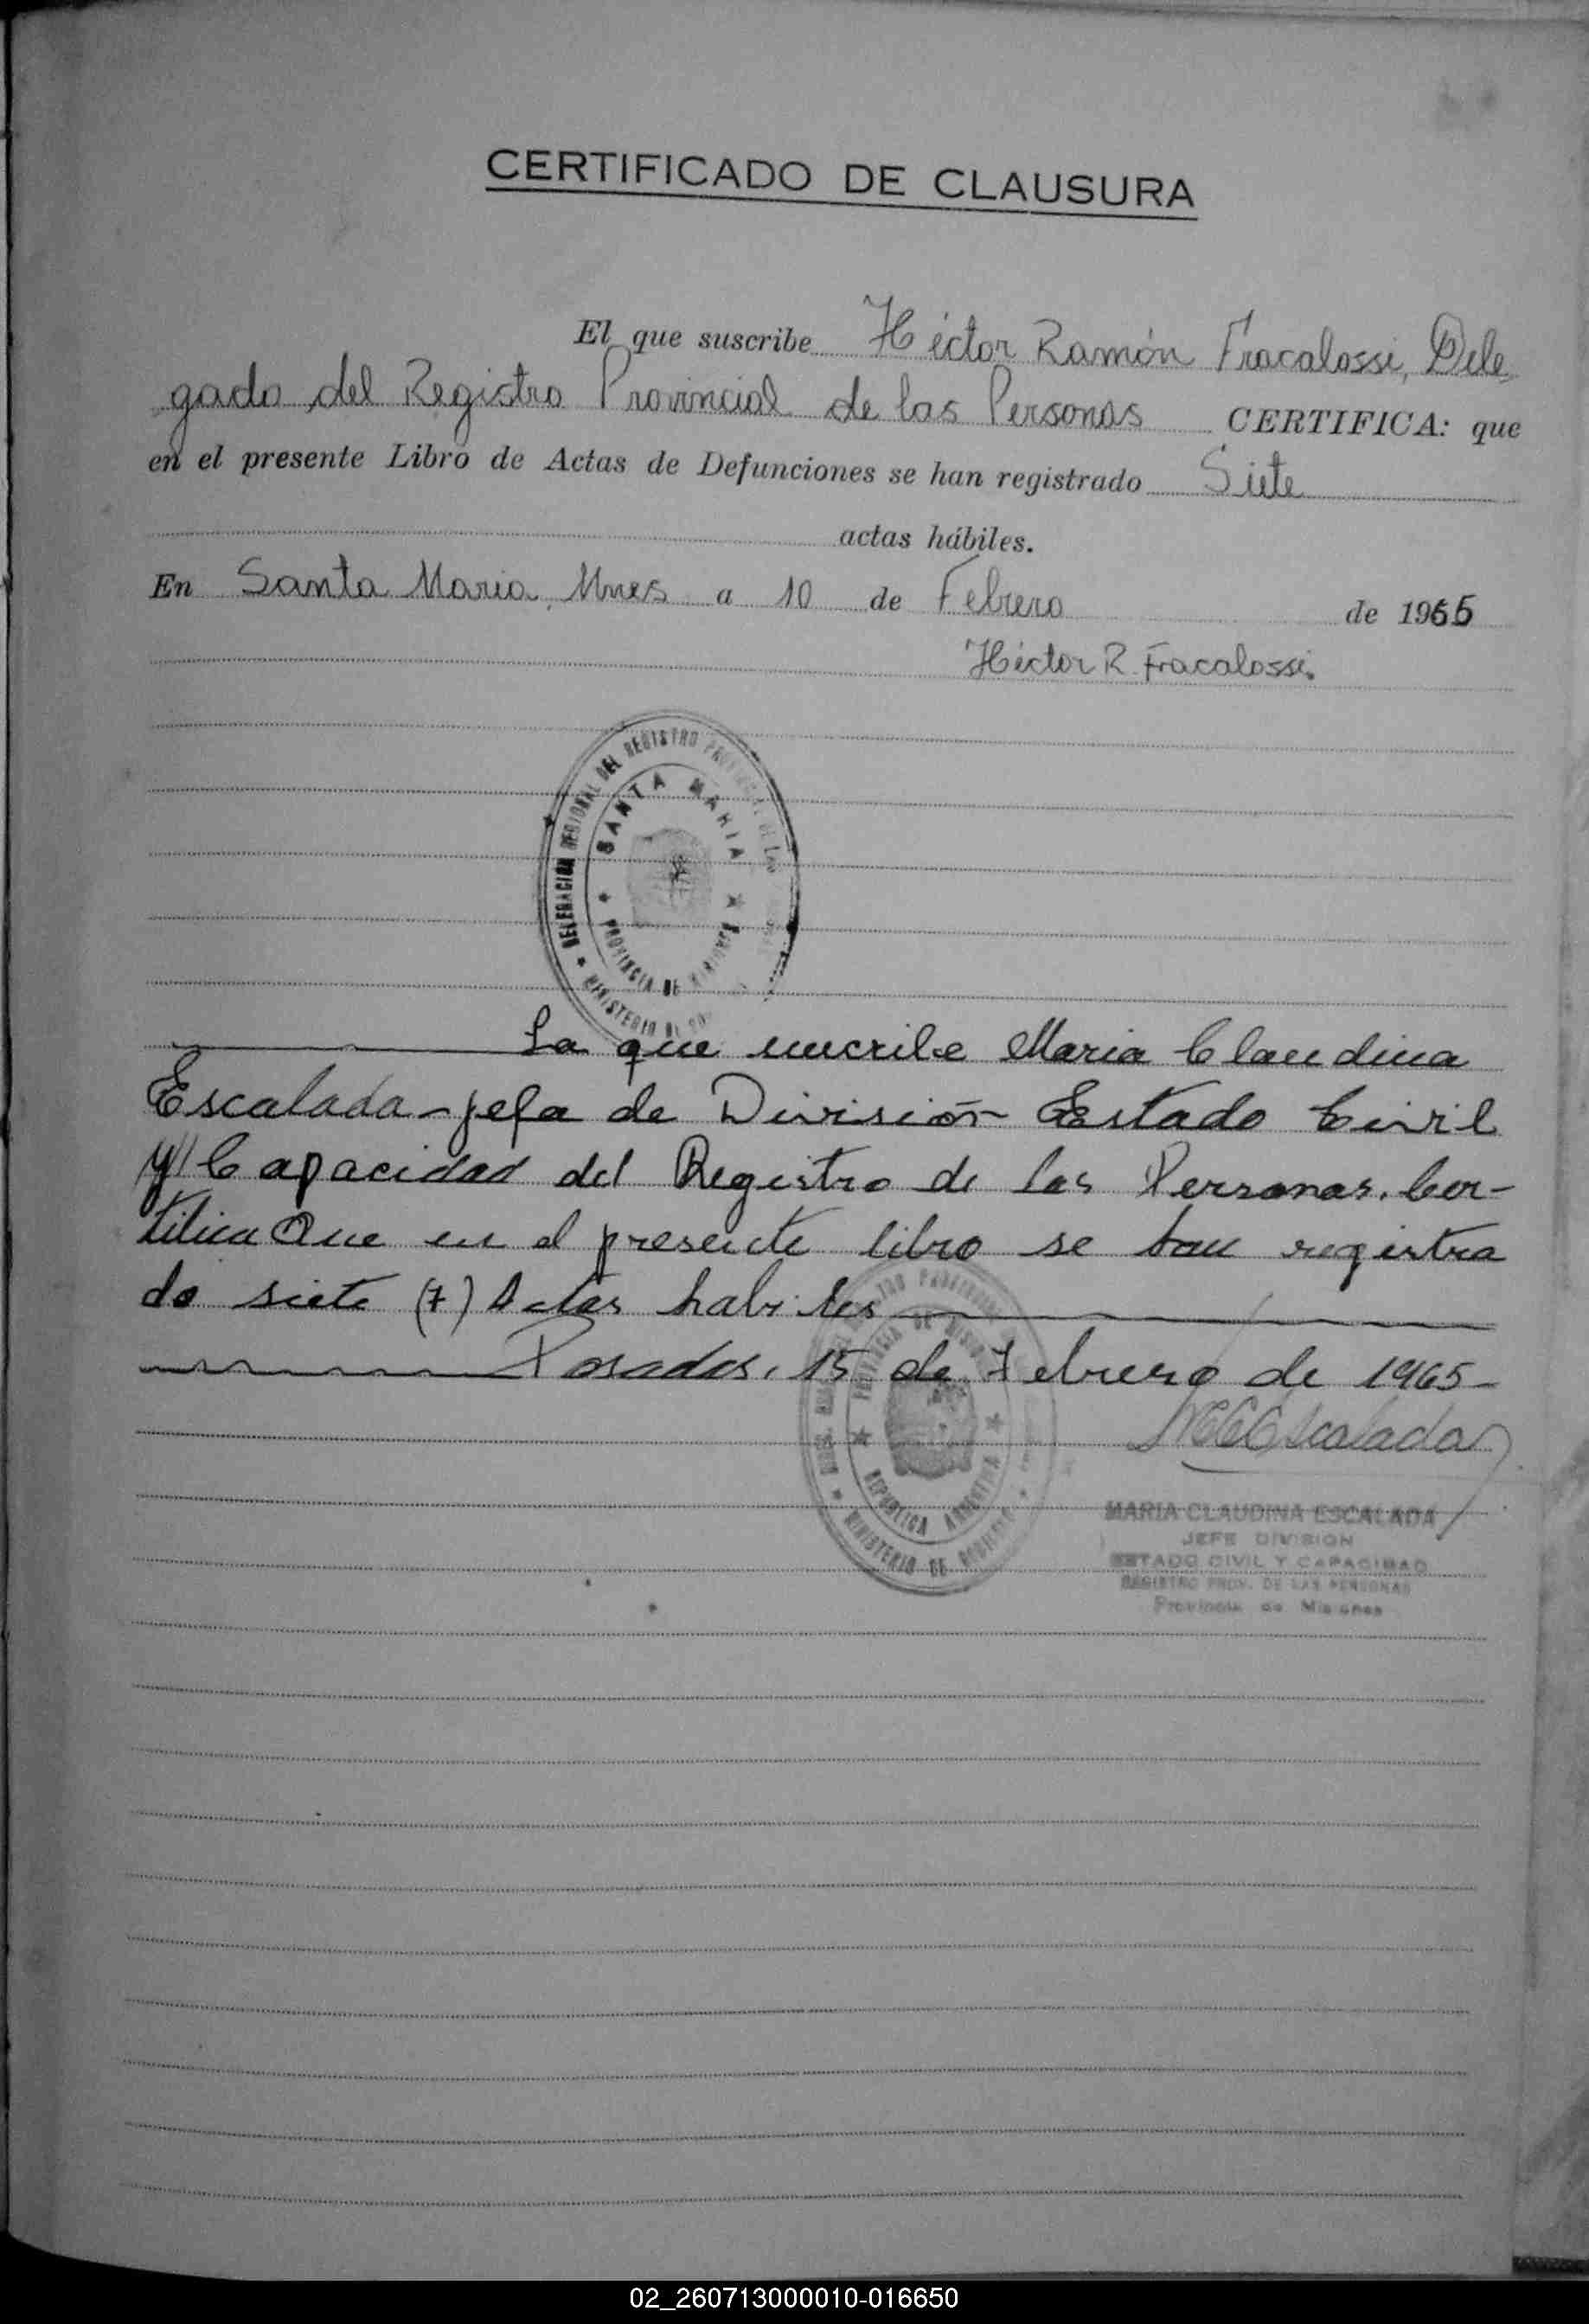 CERTIFICADO DE CLAUSURA
El que suscribe Héctor Ramón Fracalossi, Dele
gado del Registro Provincial de las Personas CERTIFICA: que
en el presente Libro de Actas de Defunciones se han registrado Siete
actas hábiles.
En Santa Maria, Mnes a 10 de Febrero de 1965
Héctor R. Fracalossi.
DELEGACION REGIONAL DEL REGISTRO
SANTA MARIA
PROVINCIA DE
MINISTERIO
La que suscribe Maria Claudina
Escalada - jefa de División Estado Civil
y Capacidad del Registro de las Personas. Cer-
tifica Que en el presente libro se han registra
do siete (7) Actas habiles
Posadas, 15 de Febrero de 1965-
PROVINCIA DE
REPUBLICA ARGENTINA
MINISTERIO DE GOBIERNO
MCEscalada
MARIA CLAUDINA ESCALADA
JEFE DIVISION
ESTADO CIVIL Y CAPACIDAD
REGISTRO PROV. DE LAS PERSONAS
Provincia de Misiones
02_260713000010-016650